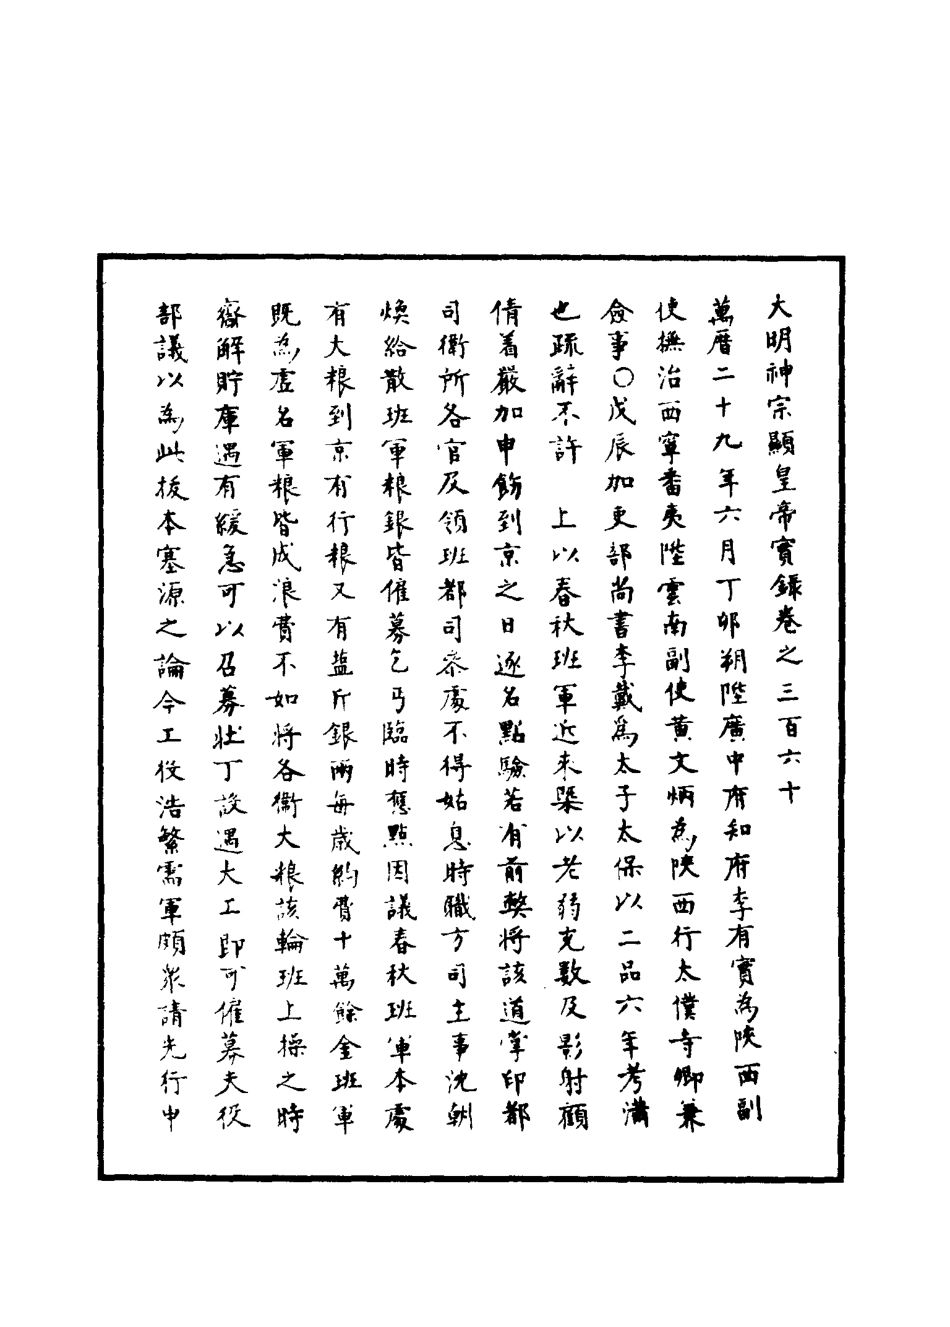 大明神宗顯皇帝實錄卷之三百六十
萬曆二十九年六月丁卯朔陞廣中府知府李有實為陝西副
使撫治西寧番夷陞雲南副使黃文炳為陝西行太僕寺卿兼
僉事○戊辰加吏部尚書李戴為太子太保以二品六年考滿
也疏辭不許　上以春秋班軍近來槩以老弱充數及影射顧
倩着嚴加申飭到京之日逐名點驗若有前獘將該道掌印都
司衛所各官及領班都司叅處不得姑息時職方司主事沈朝
煥給散班軍粮銀皆僱募乞丐臨時應點因議春秋班軍本處
有大粮到京有行粮又有盐斤銀兩每歲約費十萬餘金班軍
既為虛名軍粮皆成浪費不如將各衛大粮該輪班上操之時
齋解貯庫遇有緩急可以召募壯丁設遇大工即可僱募夫役
部議以為此拔本塞源之論今工役浩繁需軍頗衆請先行申